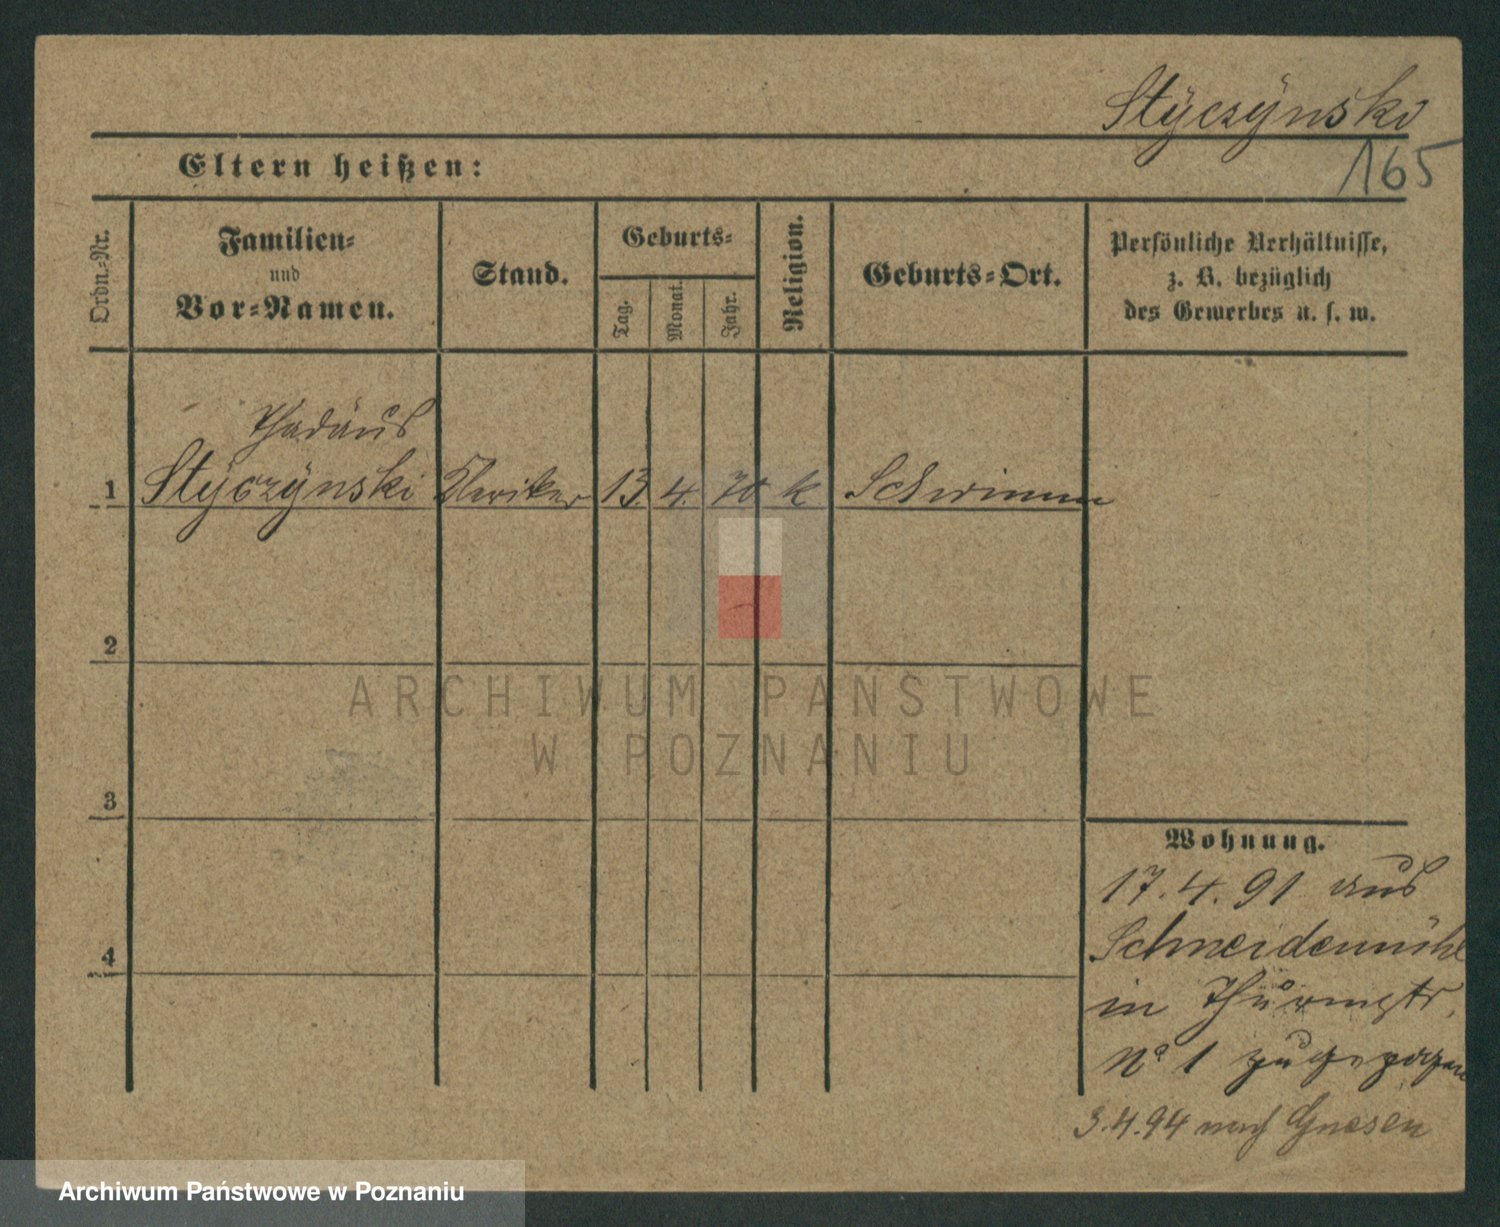 Styczynski
165
Eltern heißen:
Ordn.-Nr.
Familien-
und
Vor-Namen.
Stand.
Geburts-
Tag.
Monat.
Jahr.
Religion.
Geburts-Ort.
Persönliche Verhältnisse,
z. B. bezüglich
des Gewerbes u. s. w.
Thadäus
1 Styczynski Kleriker 13. 4. 70 k Schrimm
2
ARCHIWUM PAŃSTWOWE
W POZNANIU
3
Wohnung.
17.4.91 aus
Schneidemühl
in
No 1 zugezogen
4
3.4.94 nach Gnesen
Archiwum Państwowe w Poznaniu